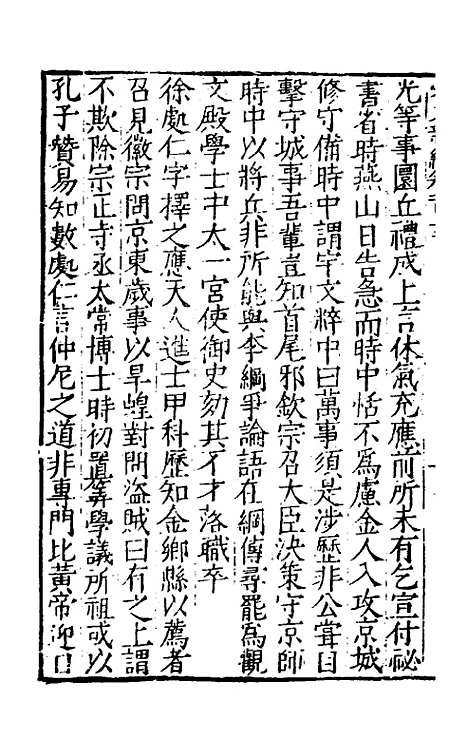 光等事圜丘禮成上言休氣充應前所未有乞宣付祕
書省時燕山日告急而時中恬不爲慮金人入攻京城
修守備時中謂宇文粹中曰萬事須是涉歷非公嘗目
擊守城事吾輩豈知首尾邪欽宗召大臣決策守京師
時中以將兵非所能與李綱爭論語在綱傳尋罷爲觀
文殿學士中太一宮使御史劾其不才落職卒
徐處仁字擇之應天人進士甲科歷知金鄉縣以薦者
召見徽宗問京東歲事以旱蝗對問盜賊曰有之上謂
不欺除宗正寺丞太常博士時初置算學議所祖或以
孔子贊易知數處仁言仲尼之道非專門比黃帝迎日